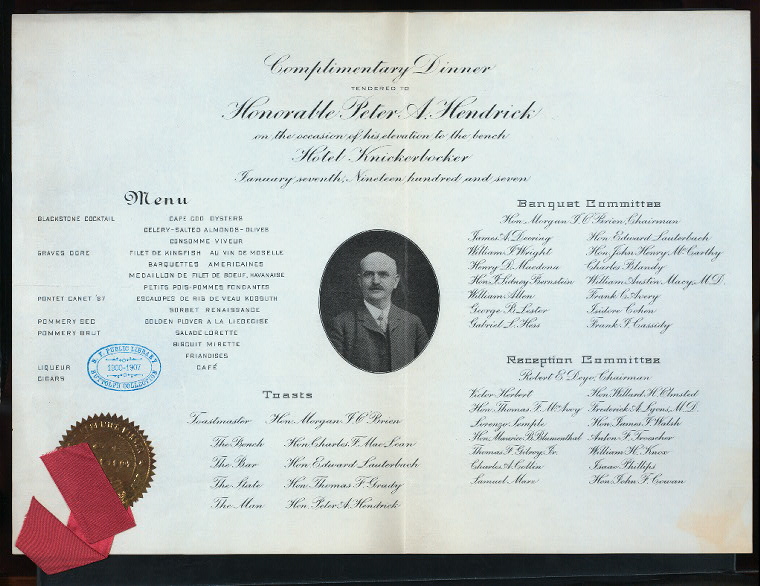 Complimentary Dinner
TENDERED TO
Honorable Peter A. Hendrick
on the occasion of his elevation to the bench
Hotel Knickerbocker
January seventh, Nineteen hundred and seven
Menu
BLACKSTONE COCKTAIL CAPE COD OYSTERS
CELERY-SALTED ALMONDS-OLIVES
CONSOMME VIVEUR
GRAVES DORE FILET DE KINGFISH AU VIN DE MOSELLE
BARQUETTES AMERICAINES
MEDAILLON DE FILET DE BOEUF, HAVANAISE
PETITS POIS-POMMES FONDANTES
PONTET CANET '87 ESCALOPES DE RIS DE VEAU KOSSUTH
SORBET RENAISSANCE
POMMERY SEC GOLDEN PLOVER A LA LIEGEOISE
POMMERY BRUT SALADE LORETTE
BISCUIT MIRETTE
FRIANDISES
LIQUEUR CAFÉ
CIGARS
N. Y. PUBLIC LIBRARY
1900-1907
BUTTOLPH COLLECTION
Toasts
Toastmaster Hon. Morgan J. O'Brien
The Bench Hon. Charles F. MacLean
The Bar Hon. Edward Lauterbach
The State Hon. Thomas F. Grady
The Man Hon. Peter A. Hendrick
Banquet Committee
Hon. Morgan J. O'Brien, Chairman
James A. Deering Hon. Edward Lauterbach
William J. Wright Hon. John Henry McCarthy
Henry D. Macdona Charles Blandy
Hon. J. Sidney Bernstein William Austin Macy, M.D.
William Allen Frank C. Avery
George B. Lester Isidore Cohen
Gabriel L. Hess Frank J. Cassidy
Reception Committee
Robert E. Deyo, Chairman
Victor Herbert Hon. Willard H. Olmsted
Hon. Thomas F. McAvoy Frederick A. Lyons, M.D.
Lorenzo Semple Hon. James J. Walsh
Hon. Maurice B. Blumenthal Anton F. Troescher
Thomas F. Gilroy, Jr. William H. Knox
Charles A. Collin Isaac Phillips
Samuel Marx Hon. John F. Cowan